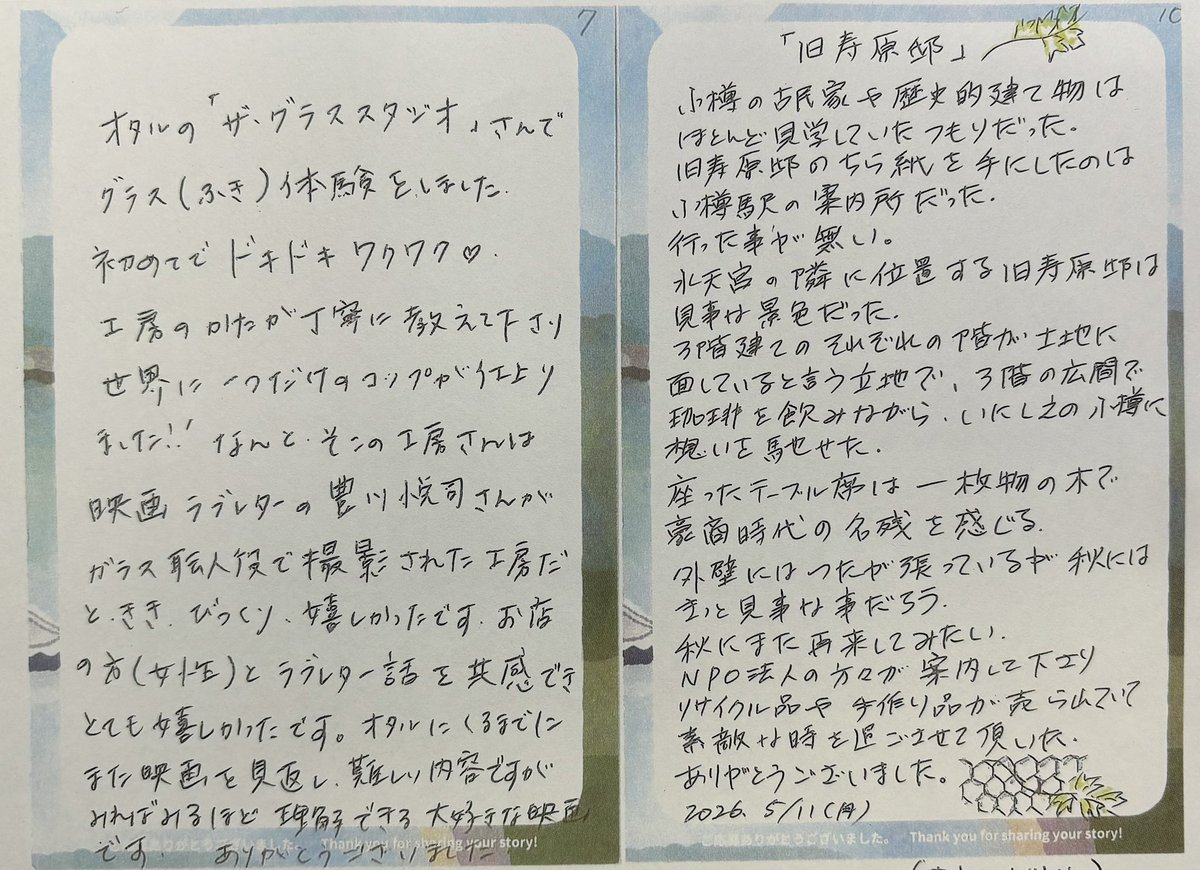 7
オタルの「ザ・グラススタジオ」さんで
グラス(ふき)体験をしました.
初めてで ドキドキ ワクワク♡.
工房のかたが丁寧に教えて下さり
世界に一つだけのコップが仕上り
ました!! なんと、そこの工房さんは
映画 ラブレターの 豊川悦司さんが
ガラス職人役で撮影された工房だ
と、きき、びっくり、嬉しかったです. お店
の方(女性)と ラブレター話を共感でき
とても嬉しかったです。オタルにくるまでに
また映画を見返し、難しい内容ですが
みればみるほど 理解できる 大好きな映画
です. ありがとうございました
ありがとうございました。 Thank you for sharing your story!
10
「旧寿原邸」
小樽の古民家や歴史的建て物は
ほとんど見学していたつもりだった.
旧寿原邸のちら紙を手にしたのは
小樽駅の案内所だった.
行った事が無い。
水天宮の隣に位置する旧寿原邸は
見事な景色だった.
3階建てのそれぞれの階が土地に
面していると言う立地で、3階の広間で
珈琲を飲みながら、いにしえの小樽に
想いを馳せた.
座ったテーブル席は一枚物の木で
豪商時代の名残を感じる.
外壁にはつたが張っているが秋には
きっと見事な事だろう.
秋にまた再来してみたい.
NPO法人の方々が案内して下さり
リサイクル品や手作り品が売られていて
素敵な時を過ごさせて頂いた.
ありがとうございました。
2026. 5/11(月)
ご応募ありがとうございました。 Thank you for sharing your story!